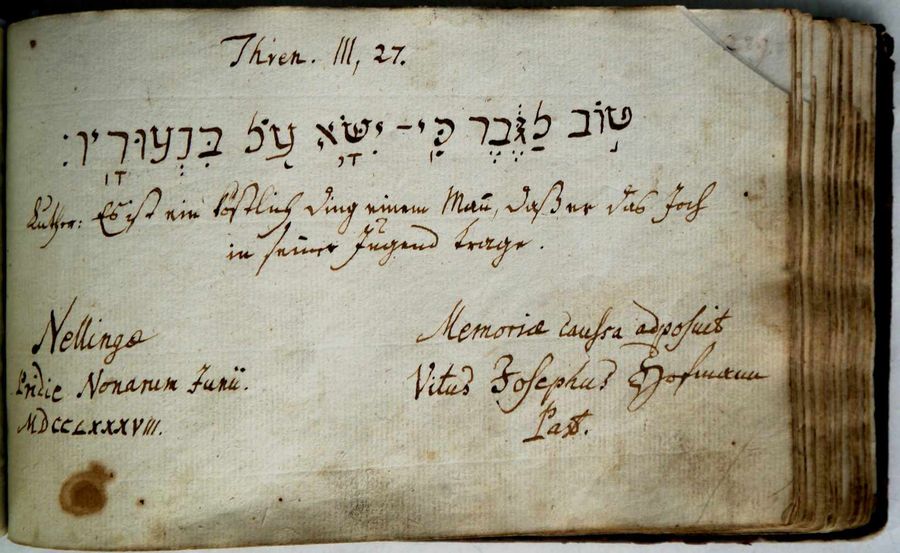 Thren. III, 27.
טוֹב לַגֶּבֶר כִּי־ יִשָּׂא עֹל בִּנְעוּרָיו׃
Luther: Es ist ein köstlich ding einem Man̄, daß er das Joch
in seiner Jugend trage.
Nellingæ
Pridie Nonarum Junii.
MDCCLXXXVIII.
Memoriæ caussa adposuit
Vitus Josephus Hofmann
Past.